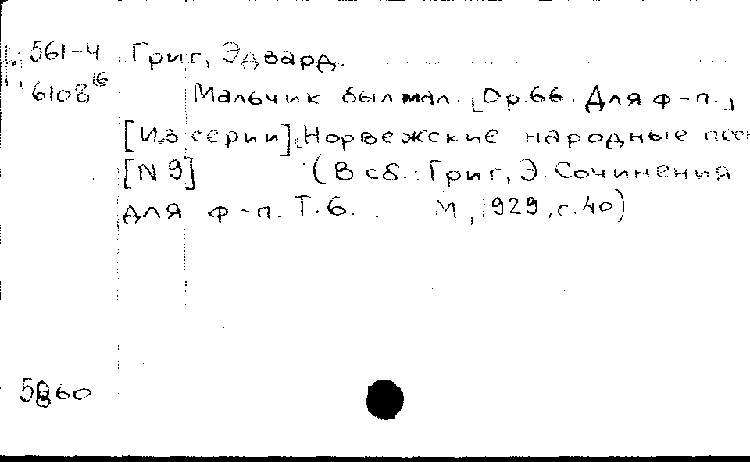 561-4 Григ, Эдвард.
6108 Мальчик был мал. Op.66. Для ф-п.,
[Из серии]. Норвежские народные
[N 9] (В сб.: Григ, Э. Сочинения
для ф-п. Т.6. М., 1929, с.40)